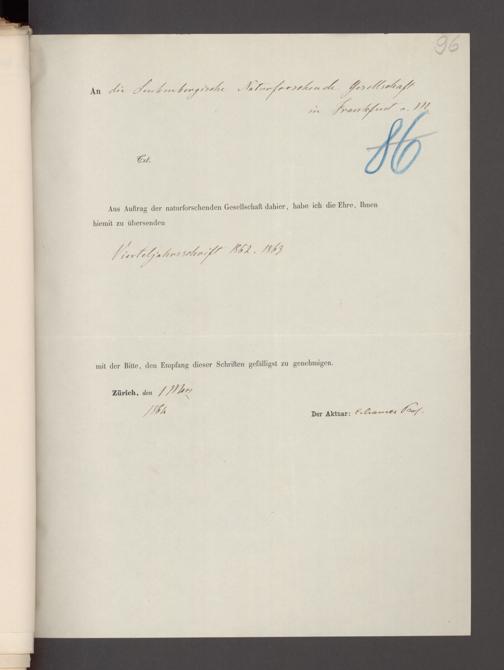 96
An die Senkenbergische Naturforschende Gesellschaft
in Frankfurt a. M
86
Tit.
Aus Auftrag der naturforschenden Gesellschaft dahier, habe ich die Ehre, Ihnen
hiemit zu übersenden
Vierteljahrsschrift 1862. 1863
mit der Bitte, den Empfang dieser Schriften gefälligst zu genehmigen.
Zürich, den 1 März
1864
Der Aktuar: Cramer Prof.